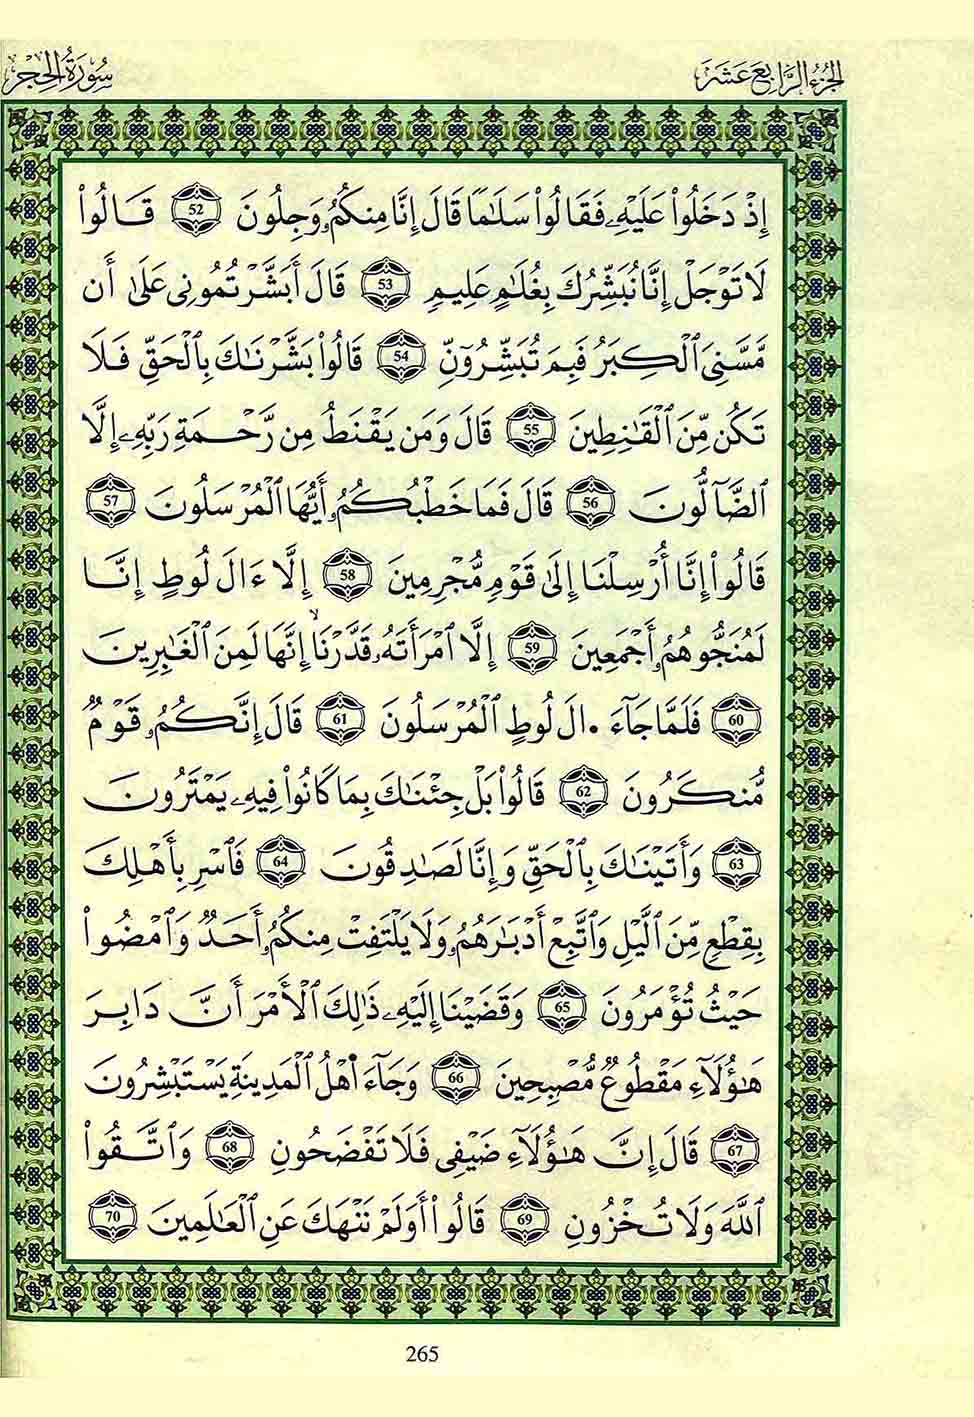 الجزء الرابع عشر
سورة الحجر
إِذْ دَخَلُواْ عَلَيْهِۦ فَقَالُواْ سَلَٰمًا قَالَ إِنَّا مِنكُمُۥ وَجِلُونَ 52 قَالُواْ
لَا تَوْجَلْ إِنَّا نُبَشِّرُكَ بِغُلَٰمٍ عَلِيمٍ 53 قَالَ أَبَشَّرْتُمُونِى عَلَىٰ أَن
مَّسَّنِىَ ٱلْكِبَرُ فَبِمَ تُبَشِّرُونِّ 54 قَالُواْ بَشَّرْنَٰكَ بِٱلْحَقِّ فَلَا
تَكُن مِّنَ ٱلْقَٰنِطِينَ 55 قَالَ وَمَن يَقْنَطُ مِن رَّحْمَةِ رَبِّهِۦ إِلَّا
ٱلضَّآلُّونَ 56 قَالَ فَمَا خَطْبُكُمُۥ أَيُّهَا ٱلْمُرْسَلُونَ 57
قَالُواْ إِنَّا أُرْسِلْنَا إِلَىٰ قَوْمٍ مُّجْرِمِينَ 58 إِلَّا ءَالَ لُوطٍ إِنَّا
لَمُنَجُّوهُمُۥ أَجْمَعِينَ 59 إِلَّا ٱمْرَأَتَهُۥ قَدَّرْنَا إِنَّهَا لَمِنَ ٱلْغَٰبِرِينَ
60 فَلَمَّا جَآءَ •الَ لُوطٍ ٱلْمُرْسَلُونَ 61 قَالَ إِنَّكُمُۥ قَوْمٌ
مُّنكَرُونَ 62 قَالُواْ بَلْ جِئْنَٰكَ بِمَا كَانُواْ فِيهِۦ يَمْتَرُونَ
63 وَأَتَيْنَٰكَ بِٱلْحَقِّ وَإِنَّا لَصَٰدِقُونَ 64 فَٱسْرِ بِأَهْلِكَ
بِقِطْعٍ مِّنَ ٱلَّيْلِ وَٱتَّبِعْ أَدْبَٰرَهُمُۥ وَلَا يَلْتَفِتْ مِنكُمُۥ أَحَدٌ وَٱمْضُواْ
حَيْثُ تُؤْمَرُونَ 65 وَقَضَيْنَا إِلَيْهِۦ ذَٰلِكَ ٱلْأَمْرَ أَنَّ دَابِرَ
هَٰؤُلَآءِ مَقْطُوعٌ مُّصْبِحِينَ 66 وَجَآءَ اهْلُ ٱلْمَدِينَةِ يَسْتَبْشِرُونَ
67 قَالَ إِنَّ هَٰؤُلَآءِ ضَيْفِى فَلَا تَفْضَحُونِ 68 وَٱتَّقُواْ
ٱللَّهَ وَلَا تُخْزُونِ 69 قَالُواْ أَوَلَمْ نَنْهَكَ عَنِ ٱلْعَٰلَمِينَ 70
265